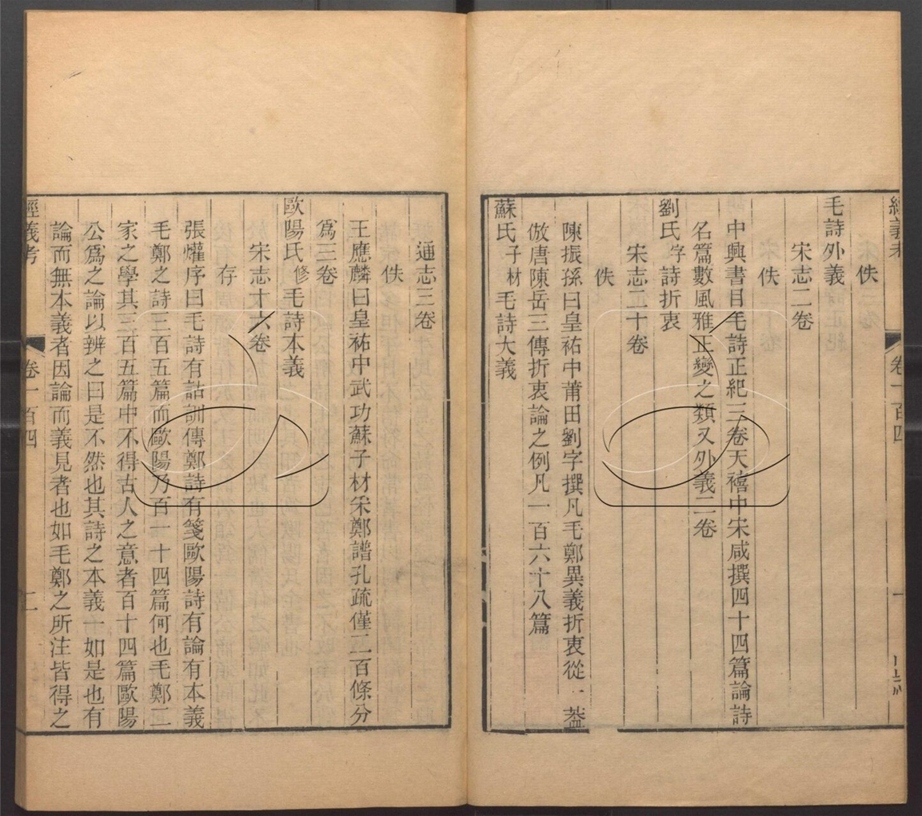 經義考 卷一百四
佚
毛詩外義
宋志二卷
佚
中興書目毛詩正紀三卷天禧中宋咸撰四十四篇論詩
名篇數風雅正變之類又外義二卷
劉氏宇詩折衷
宋志二十卷
佚
陳振孫曰皇祐中莆田劉宇撰凡毛鄭異義折衷從一葢
倣唐陳岳三傳折衷論之例凡一百六十八篇
蘇氏子材毛詩大義
通志三卷
佚
王應麟曰皇祐中武功蘇子材采鄭譜孔疏僅二百條分
爲三卷
歐陽氏修毛詩本義
宋志十六卷
存
張爟序曰毛詩有詁訓傳鄭詩有箋歐陽詩有論有本義
毛鄭之詩三百五篇而歐陽乃百一十四篇何也毛鄭二
家之學其三百五篇中不得古人之意者百十四篇歐陽
公爲之論以辨之曰是不然也其詩之本義一如是也有
論而無本義者因論而義見者也如毛鄭之所注皆得之
經義考 卷一百四 二